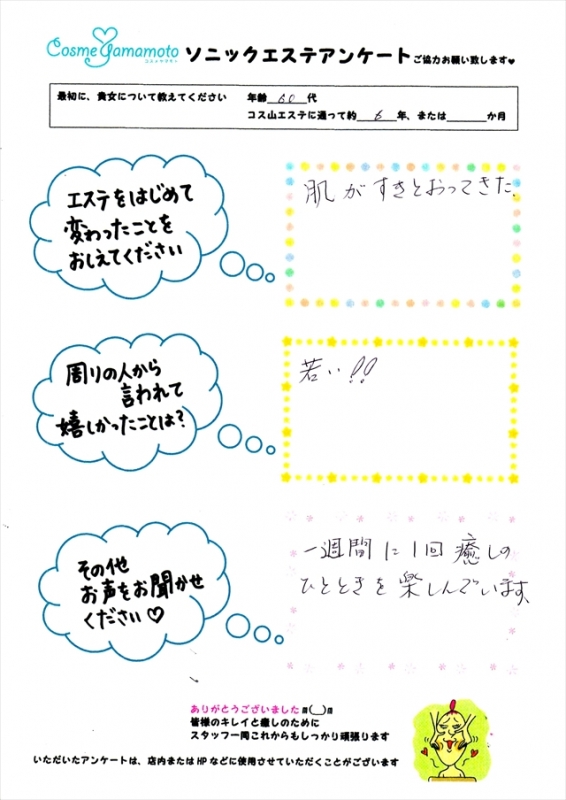 Cosme Yamamoto
コスメヤマモト
ソニックエステアンケートご協力お願い致します♥
最初に、貴女について教えてください 年齢 60 代
コス山エステに通って約 6 年、または か月
エステをはじめて
変わったことを
おしえてください
肌がすきとおってきた.
周りの人から
言われて
嬉しかったことは?
若い!!
その他
お声をお聞かせ
ください♡
一週間に1回癒しの
ひとときを楽しんでいます
ありがとうございました
皆様のキレイと癒しのために
スタッフ一同これからもしっかり頑張ります
いただいたアンケートは、店内またはHPなどに使用させていただくことがございます